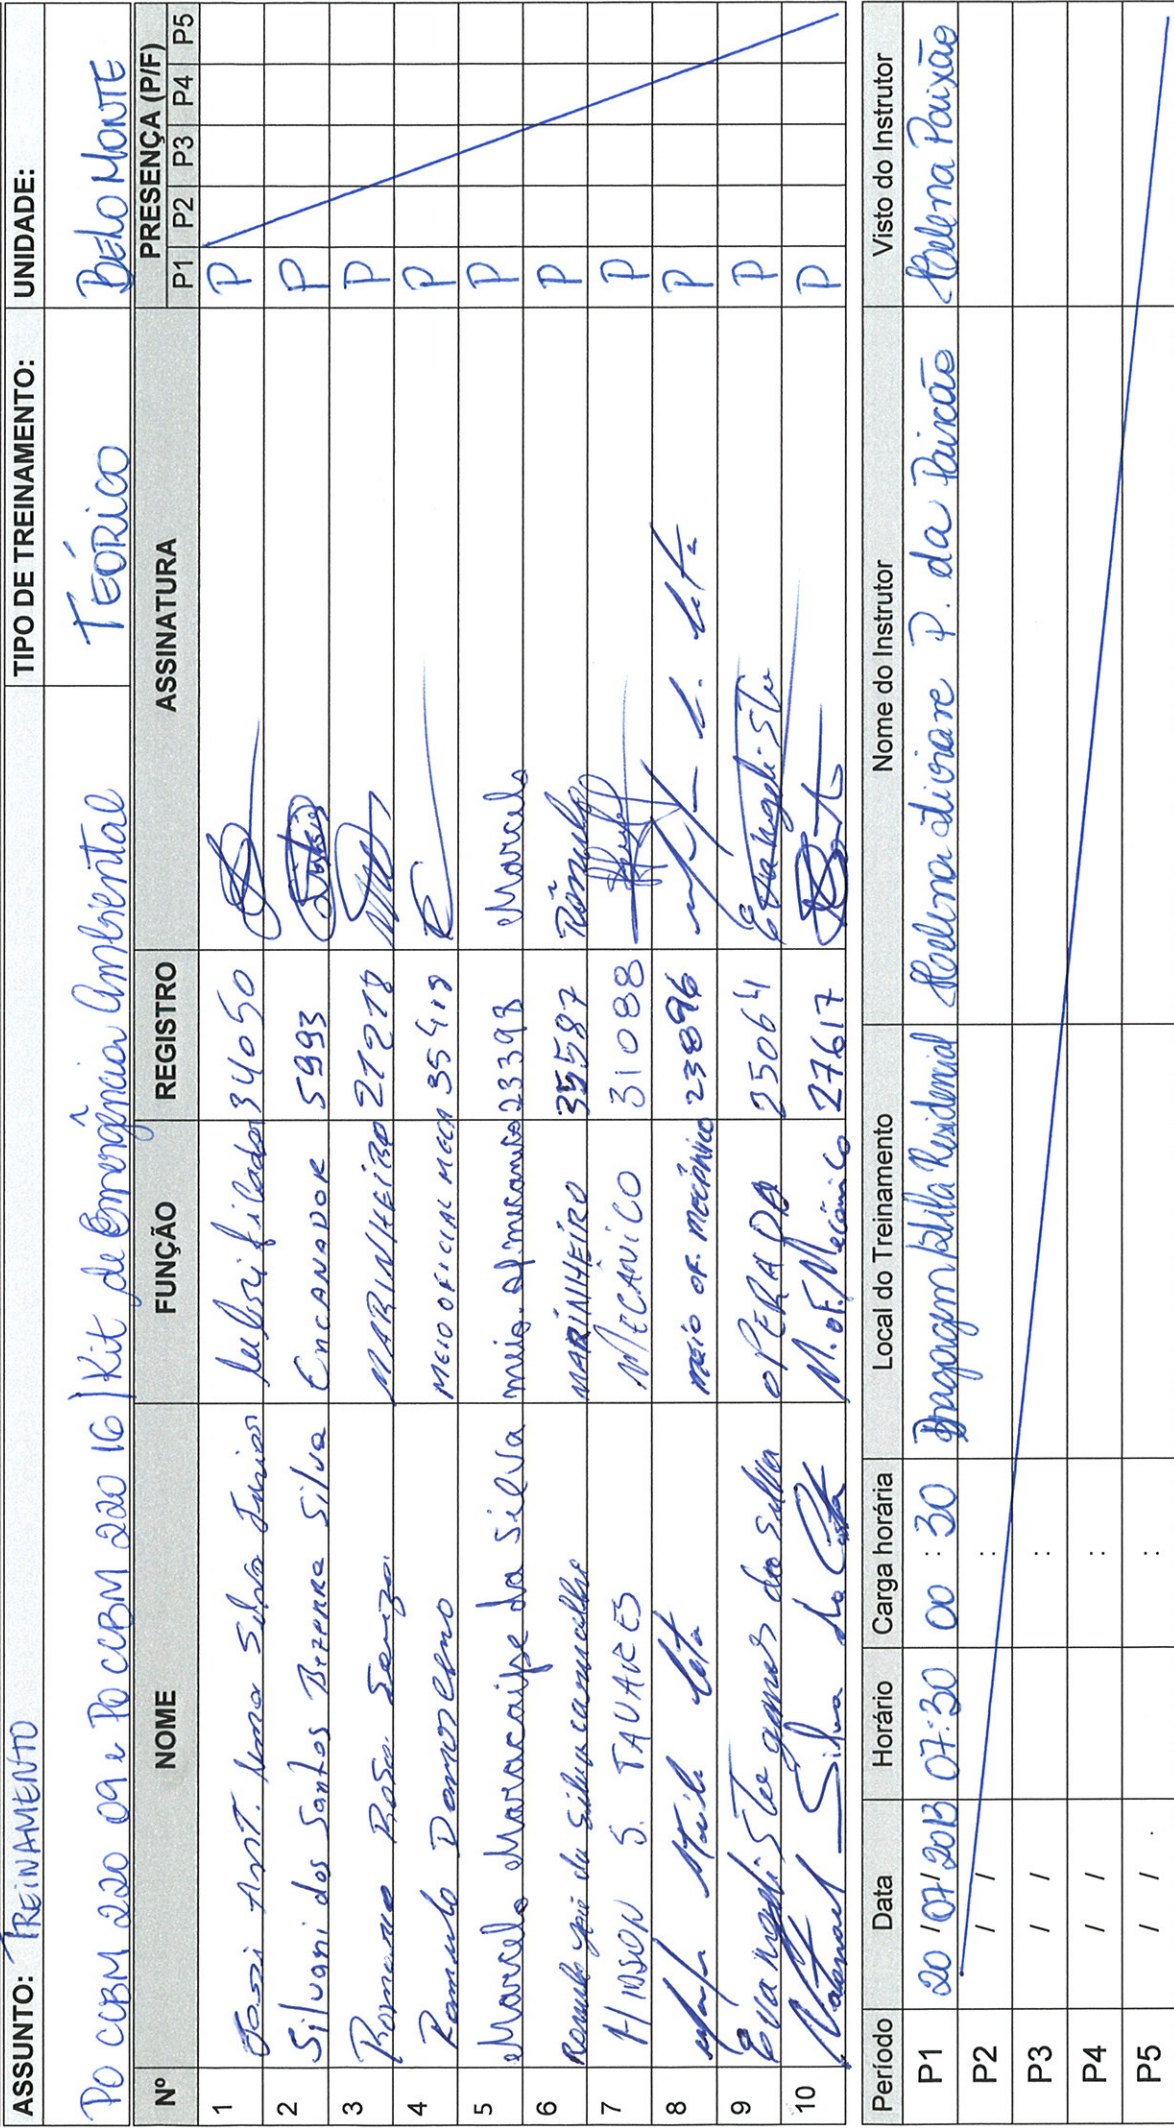 ASSUNTO: TREINAMENTO TIPO DE TREINAMENTO: UNIDADE:
PO CCBM 220 09 e PO CCBM 220 16 / Kit de Emergência Ambiental TEÓRICO BELO MONTE
Nº NOME FUNÇÃO REGISTRO ASSINATURA PRESENÇA (P/F)
P1 P2 P3 P4 P5
1 José Ant. Lima Silva Junior lubrificador 34050 P
2 Silvani dos Santos Bezerra Silva Encanador 5993 P
3 Romario Rosa Souza MARINHEIRO 21218 P
4 Romulo Damasceno MEIO OFICIAL MECA 35419 P
5 Marcelo Maracaipe da Silva meio. of. mecanico 23398 Marcelo P
6 Romulo José da Silva carvalho MARINHEIRO 35587 Rômulo P
7 HUDSON S. TAVARES MECÂNICO 31088 P
8 meio OF. Mecânico 23896 P
9 Evangelista gomes da Silva OPERADO 25064 Evangelista P
10 Natanael Silva da Costa M. of. Mecânico 27617 P
Período Data Horário Carga horária Local do Treinamento Nome do Instrutor Visto do Instrutor
P1 20/07/2013 07:30 00:30 Residencial P. da Paixão Helena Paixão
P2 / / :
P3 / / :
P4 / / :
P5 / / :